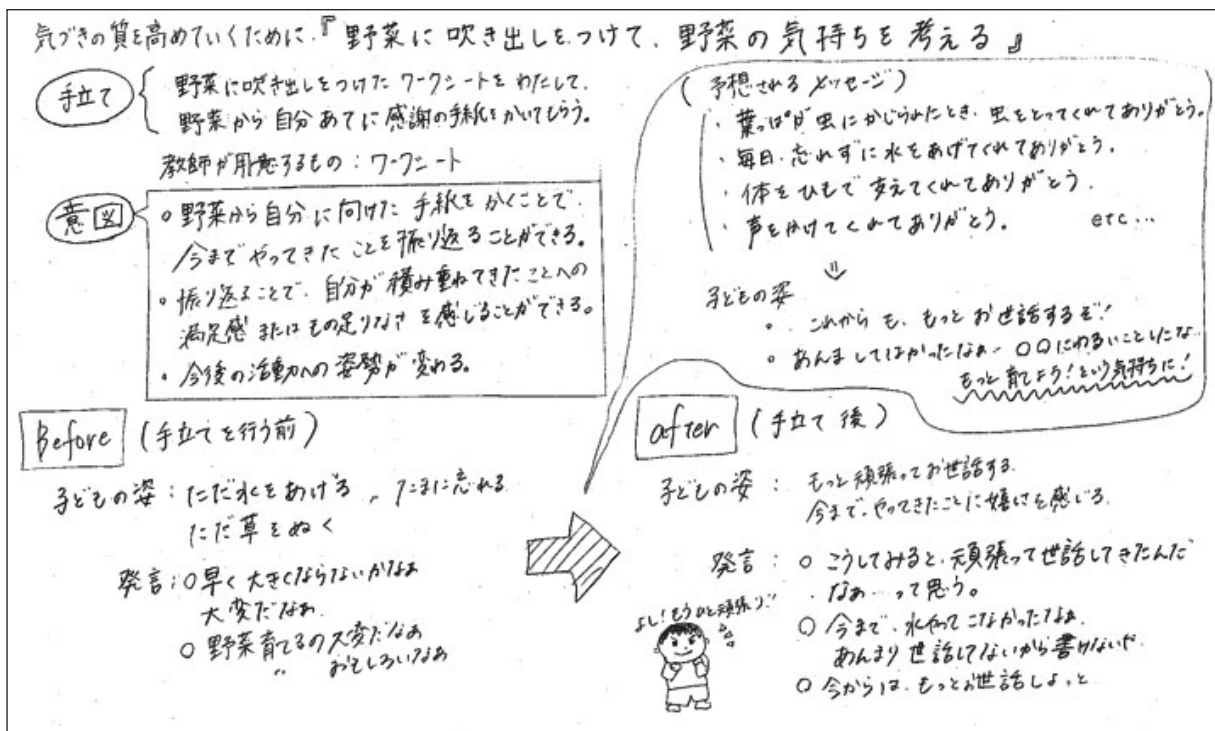 気づきの質を高めていくために、『野菜に吹き出しをつけて、野菜の気持ちを考える』
手立て
野菜に吹き出しをつけたワークシートをわたして、
野菜から自分あてに感謝の手紙をかいてもらう。
教師が用意するもの：ワークシート
意図
○野菜から自分に向けた手紙をかくことで、
今までやってきたことを振り返ることができる。
・振り返ることで、自分が積み重ねてきたことへの
満足感またはもの足りなさを感じることができる。
・今後の活動への姿勢が変わる。
(予想されるメッセージ)
・葉っぱが虫にかじられたとき、虫をとってくれてありがとう。
・毎日、忘れずに水をあげてくれてありがとう。
・体をひもで支えてくれてありがとう。
・声をかけてくれてありがとう。 etc…
⇓
子どもの姿
・これからも、もっとお世話するぞ!
・あんましてなかったなぁ… ○○にわるいことしたな
もっと育てよう!という気持ちに!
Before (手立てを行う前)
子どもの姿：ただ水をあげる 、たまに忘れる
ただ草をぬく
発言：○早く大きくならないかなぁ
大変だなぁ
○野菜育てるの大変だなぁ
〃 おもしろいなぁ
after (手立て後)
子どもの姿： もっと頑張ってお世話する
今まで、やってきたことに嬉しさを感じる。
発言： ○こうしてみると、頑張って世話してきたんだ
なぁ…って思う。
○今まで、水やってこなかったなぁ
あんまり世話してないから書けないや
○今からは、もっとお世話しよっと
よし!もうひと頑張り!!